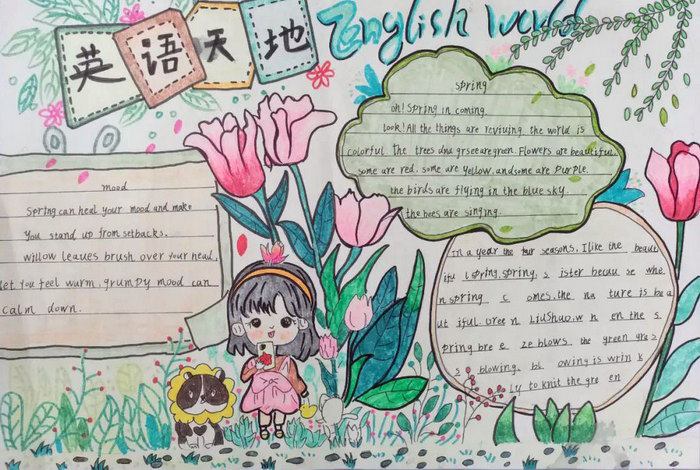 英语天地
English World
spring
oh! Spring in coming.
look! All the things are reviving. the world is
colorful. The trees and grseearegreen. Flowers are beautiful.
some are red. some are Yellow. andsome are purple.
the birds are flying in the blue sky.
the bees are singing.
mood
Spring can heal your mood and make
You stand up from setbacks.
willow leaves brush over your head,
let you feel warm, grumpy mood can
calm down.
In a year the four seasons, I like the beaut
ifu l spring, spring, s ister becau se whe
n spring c omes. the na ture is be a
ut iful. Gree n Liushuo. w h en the s
pring bre e ze blows. the green gra s
s blowing. bl owing is wrin k
ly to knit the gre en